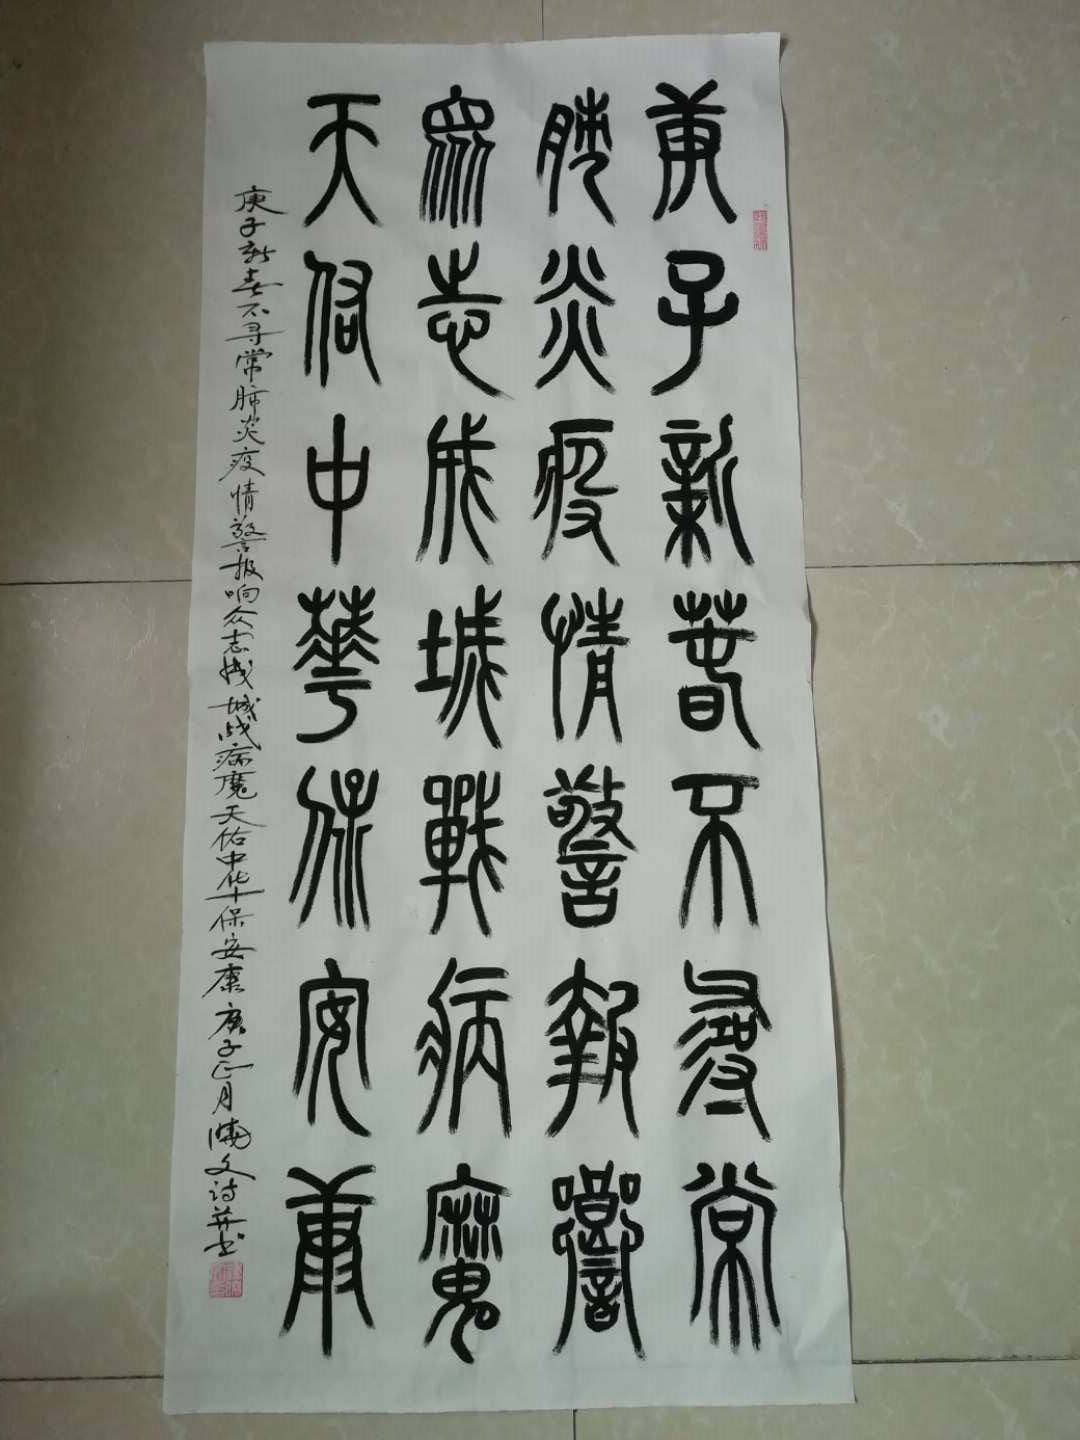 庚子新春不尋常
肺炎疫情警報響
眾志成城戰病魔
天佑中華保安康
庚子新春不寻常肺炎疫情警报响众志成城战病魔天佑中华保安康 庚子正月 文诗并书